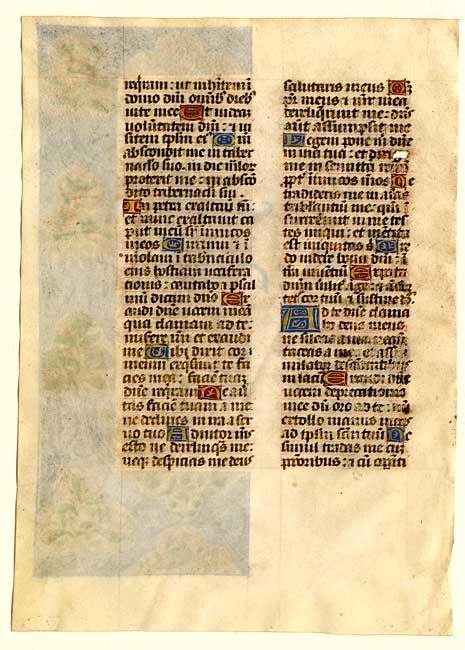 req̄ram : ut inhītem ī
domo dnī omībꝰ dieb
vite mee Ut videaꝫ
voluntatem dnī : ⁊ vi
sitem tplm eiꝰ Qm̄
abscondit me in taber
naclo suo : in die mloꝝ
protexit me : in absco
dito tabernacli sui
In petra exaltauit m̄ :
et nunc exaltauit ca
put meū sr̄ inimicos
meos Circuiui ⁊ ī
molaui ī tabernaculo
eius hostiam uociferā
tionis : cantabo ⁊ psal
mū dicam dnō Ex
audi dne uocem meā
qua clamaui ad te :
miserere mī et exaudi
me Tibi dixit cor
meum exqsiuit te fa
cies mea : faciē tuam
dne req̄ram Ne auer
tas faciē tuam a me :
ne declines in ira a ser
uo tuo Adiutor mꝰ
esto ne derelinqs me :
neqꝫ despicias me deus
salutaris meus Qm̄
pr̄ meus ⁊ mr̄ mea
dereliquerūt me : dns
aut assumpsit me
Legem pone m̄ dne
in uia tua : et dirige
me in semita recta
ppt̄ inimicos meos Ne
tradideris me in aīas
tribulantiū me : qm̄ ī
surrexerūt in me tes
tes iniqui : et mentita
est iniquitas s̄ Cre
do videre bona dnī : ī
t̄ra uiuentiū Expecta
dnm̄ uirilit̄ age : ⁊ cōfor
tet cor tuū ⁊ sustine d
Ad te dne clama
bo deus meus
ne sileas a me : neqn̄
taceas a me : et assi
milabor descendentibꝰ
in lacū Exaudi dne
uocem deprecationis
mee dū oro ad te : dū
extollo manus meas
ad tplm sanctum Ne
simul tradas me cum
pctōribus : ⁊ cū opāti